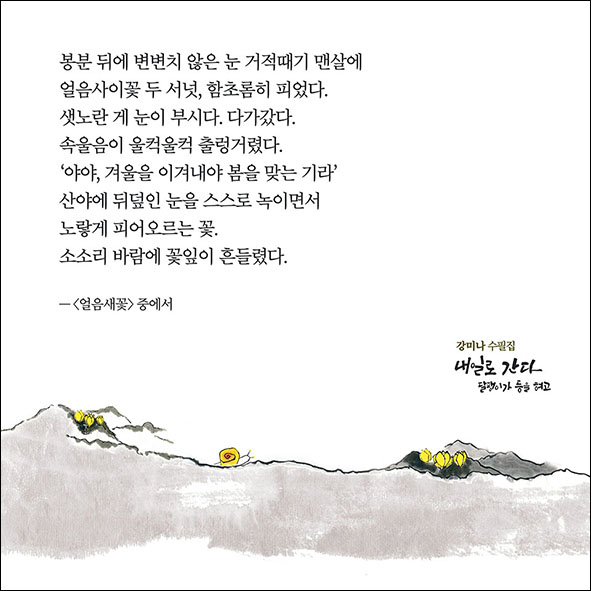 봉분 뒤에 변변치 않은 눈 거적때기 맨살에
얼음사이꽃 두 서넛, 함초롬히 피었다.
샛노란 게 눈이 부시다. 다가갔다.
속울음이 울컥울컥 출렁거렸다.
‘야야, 겨울을 이겨내야 봄을 맞는 기라’
산야에 뒤덮인 눈을 스스로 녹이면서
노랗게 피어오르는 꽃.
소소리 바람에 꽃잎이 흔들렸다.
– 〈얼음새꽃〉 중에서
강미나 수필집
내일로 간다
달팽이가 등을 켜고